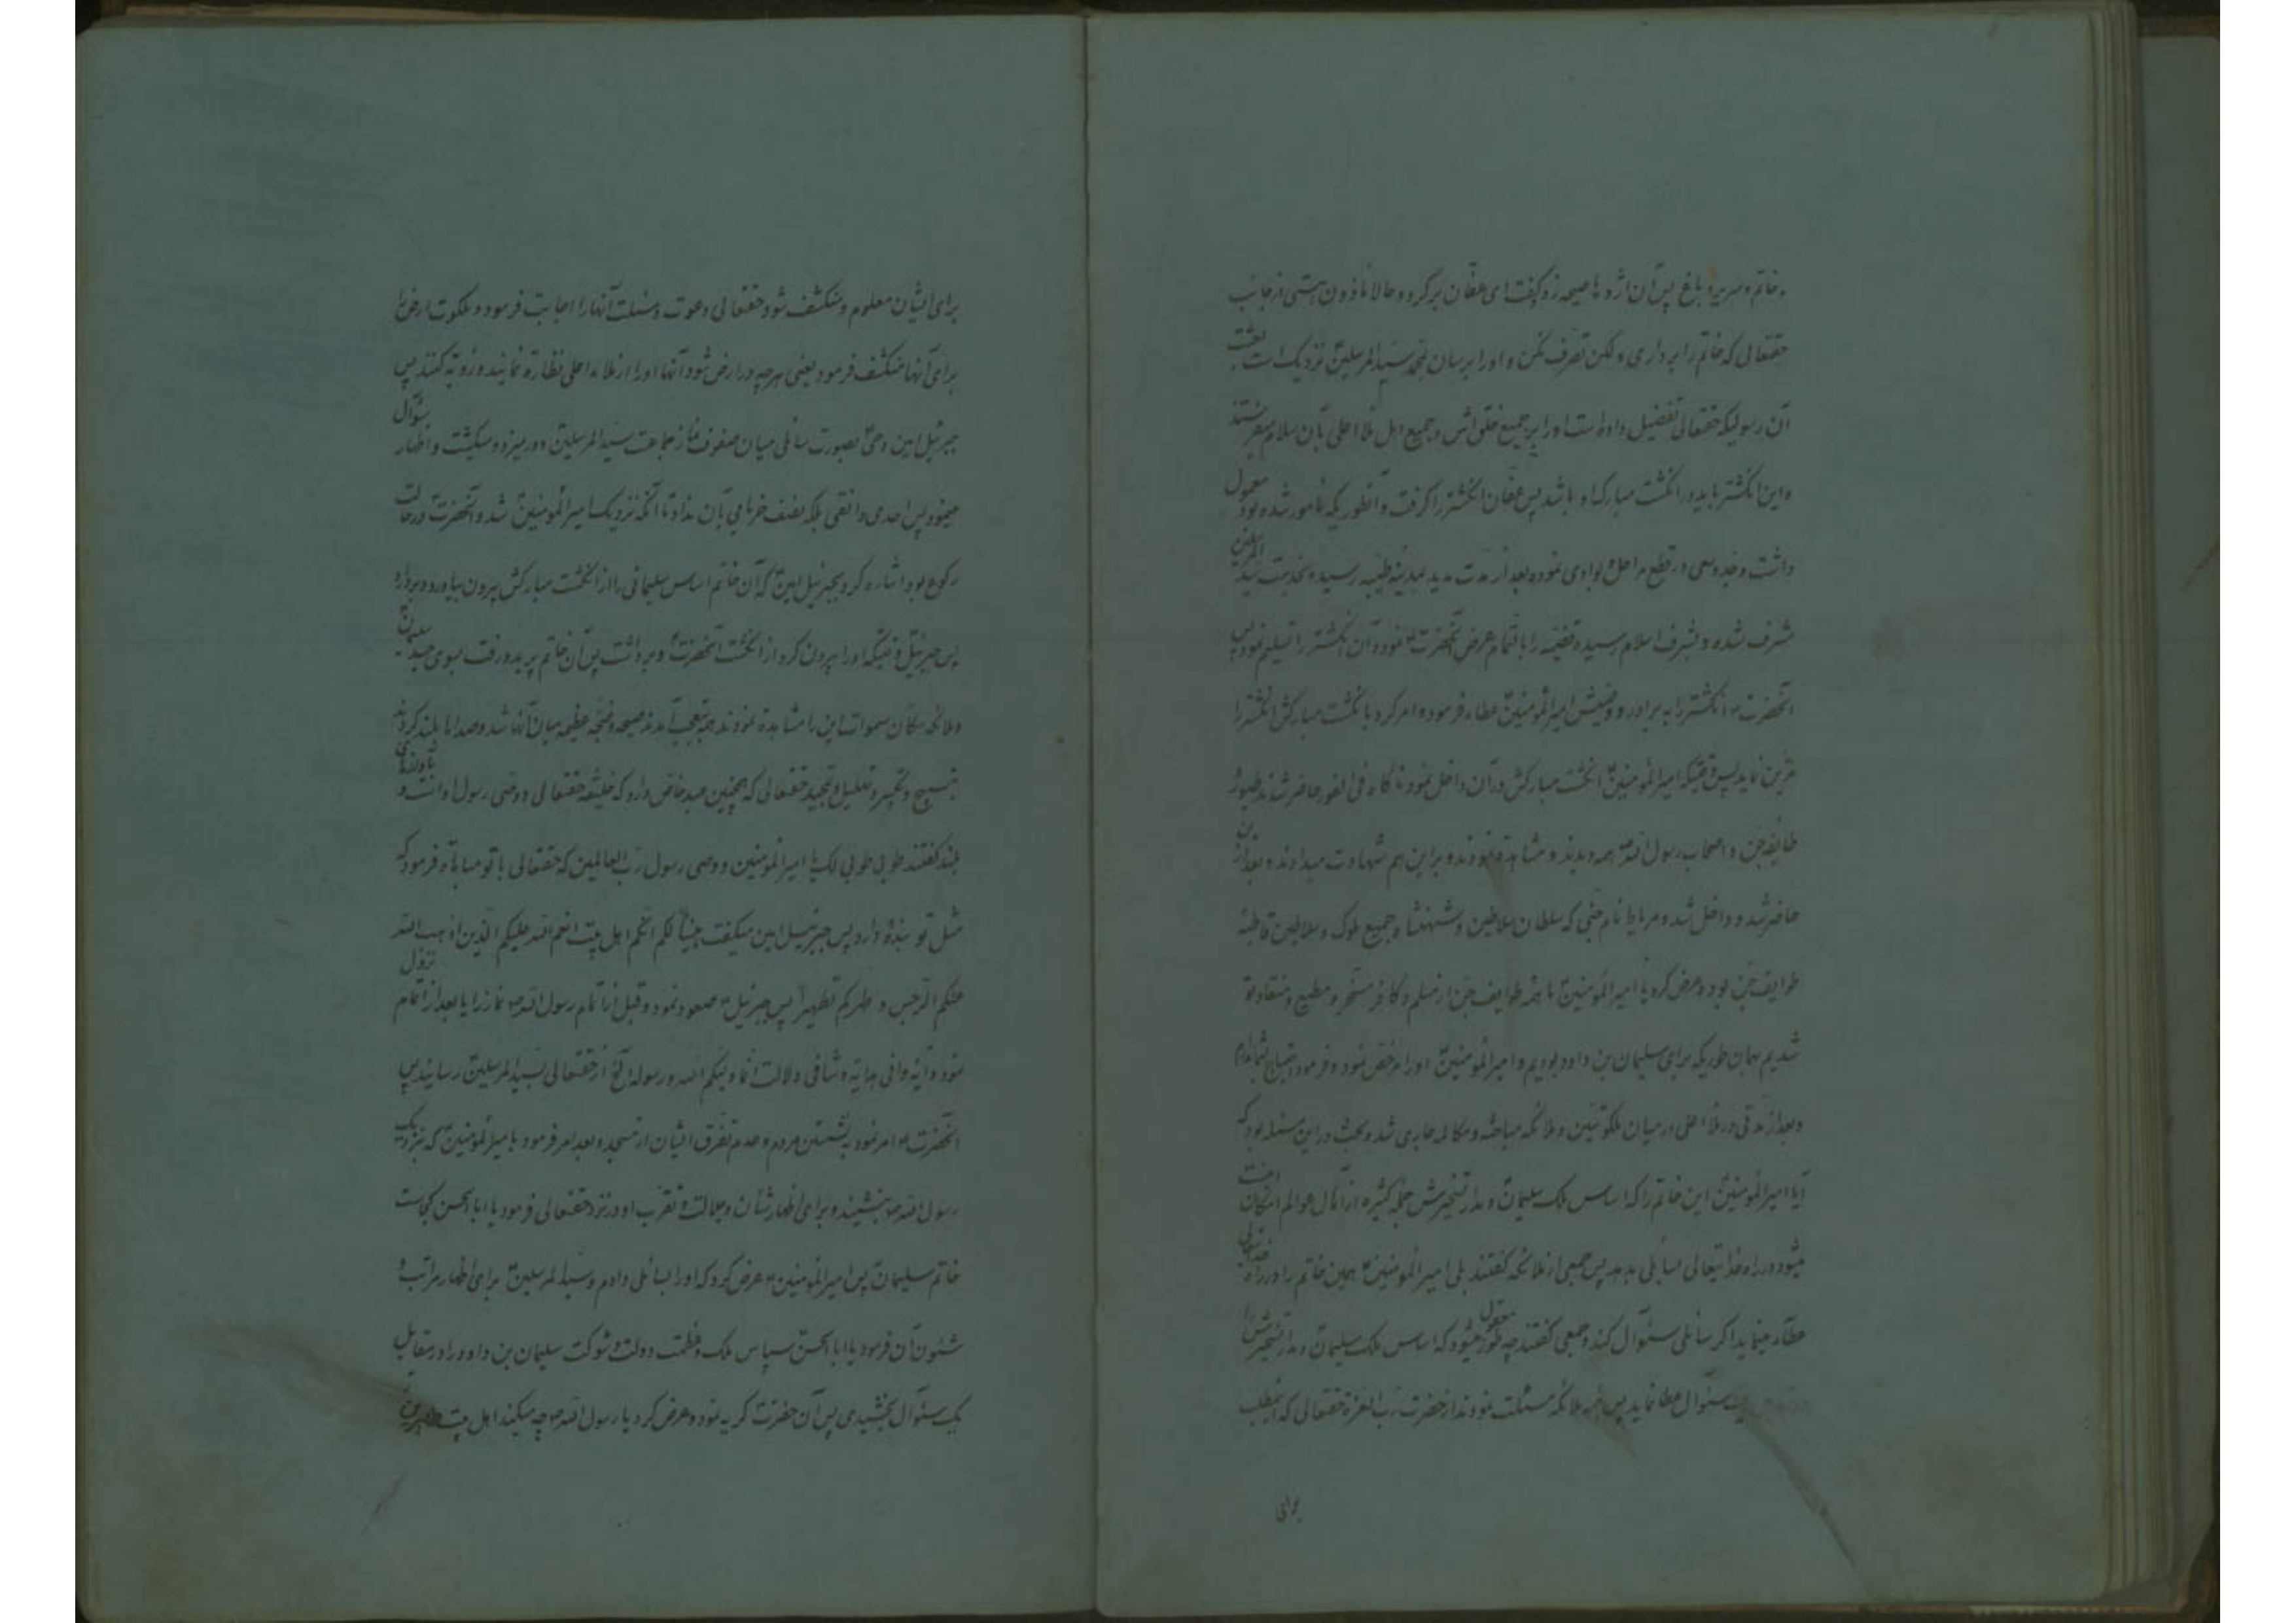 و خاتم و سریر و باغ پس آن اژدها صیحه زد و گفت ای عفان برگرد و حالا مأذون هستی از جانب
حقتعالی که خاتم را برداری و لکن تصرف مکن و او را برسان بمحمد سید المرسلین نزدیک است بعثت
آن رسولیکه حقتعالی تفضیل داده است او را بر جمیع خلق اش و جمیع اهل ملأ اعلی بآن سلام میفرستند
و این انگشتر باید در انگشت مبارک او باشد پس عفان انگشتر را گرفت و آنطوریکه مأمور شده بود معمول
داشت و جد و سعی در قطع مراحل و بوادی نموده بعد از مدت مدید بمدینه طیبه رسیده بخدمت سید المرسلین
مشرف شده و بشرف اسلام رسیده قضیه را بالتمام عرض آنحضرت ص نمود و آن انگشتر را تسلیم نمود پس
آنحضرت ص انگشتر را به برادر و وصیش امیر المؤمنین عطاء فرمود و امر کرد با نگشت مبارکش انگشتر را
مزین نماید پس وقتیکه امیر المؤمنین انگشت مبارکش در آن داخل نمود ناگاه فی الفور حاضر شدند طیور
طایفه جن و اصحاب رسول الله ص همه دیدند و مشاهده نمودند و بر این هم شهادت میدادند و بعد از این
حاضر شد و داخل شد و مریا نام جنی که سلطان سلاطین و شهنشاه جمیع ملوک و سلاطین قاطبه
طوایف جن بود و عرض کرد یا امیر المؤمنین ما همه طوایف جن از مسلم و کافر مسخر و مطیع و منقاد تو
شدیم بهمان طوریکه برای سلیمان بن داود بودیم و امیر المؤمنین او را مرخص نمود و فرمود احتیاج بشما ندارم
و بعد از مدتی در ملأ اعلی در میان ملکوتیین و ملائکه مباحثه و مکالمه جاری شد و بحث در این مسئله بود که
آیا امیر المؤمنین این خاتم را که اساس ملک سلیمان و مدار تسخیرش جمله کثیره از آمال عوالم امکان است
میشود در راه خدایتعالی بسائلی بدهد پس جمعی از ملائکه گفتند بلی امیر المؤمنین همین خاتم را در راه خدایتعالی
عطاء مینماید اگر سائلی سئوال کند و جمعی گفتند چه طور معقول میشود که اساس ملک سلیمان و مدار تسخیرش را
سئوال عطا نماید پس همه ملائکه مسئلت نمودند از حضرت رب العزة حقتعالی که این مطلب
برای
برای ایشان معلوم و منکشف شود حقتعالی دعوت و مسئلت آنها را اجابت فرمود و ملکوت ارض را
برای آنها منکشف فرمود یعنی هر چه در ارض شود آنها او را از ملاء اعلی نظاره نمایند و رؤیه کنند پس
جبرئیل امین وحی بصورت سائلی میان صفوف نماز جماعت سید المرسلین دور میزد و میگشت و اظهار سئوال
مینمود پس احدی دانقی بلکه نصف خرمایی بآن نداد تا آنکه نزدیک امیر المؤمنین شد و آنحضرت در حالت
رکوع بود اشاره کرد بجبرئیل امین که آن خاتم اساس سلیمانی را از انگشت مبارکش بیرون بیاورد و بردارد
پس جبرئیل وقتیکه او را بیرون کرد از انگشت آنحضرت و برداشت پس آن خاتم پرید و رفت بسوی جسد سلیمان
و ملائکه سکان سموات این را مشاهده نمودند همه بتعجب آمدند صیحه و ضجه عظیمه میان آنها شد و صداها بلند کردند
بتسبیح و تکبیر و تهلیل و تمجید حقتعالی که همچنین عبد خاص دارد که خلیفه حقتعالی و وصی رسول او است و
بلند گفتند طوبی طوبی لک یا امیر المؤمنین و وصی رسول رب العالمین که حقتعالی با تو مباهاة فرمود که
مثل تو بنده دارد پس جبرئیل امین میگفت هنیئاً لکم انکم اهل بیت انعم الله علیکم الذین اذهب الله
عنکم الرجس و طهرکم تطهیراً پس جبرئیل صعود نمود و قبل از اتمام رسول الله ص نماز را یا بعد از اتمام نزول
نمود و آیه وافی هدایة و شافی دلالت انما ولیکم الله و رسوله الخ از حقتعالی بسید المرسلین رسانید پس
آنحضرت ص امر نمود به نشستن مردم و عدم تفرق ایشان از مسجد و بعد امر فرمود با میر المؤمنین که نزدیک
رسول الله ص بنشیند و برای اظهار شأن و جلالت و تقرب او در نزد حقتعالی فرمود یا ابا الحسن کجاست
خاتم سلیمان پس امیر المؤمنین عرض کرد که او را بسائلی دادم و سید المرسلین برای اظهار مراتب و
شئون آن فرمود یا ابا الحسن سپاس ملک و عظمت دولت و شوکت سلیمان بن داود را در مقابل
یک سئوال بخشیدی پس آن حضرت گریه نمود و عرض کرد یا رسول الله ص چه میکنند اهل بیت طاهرین